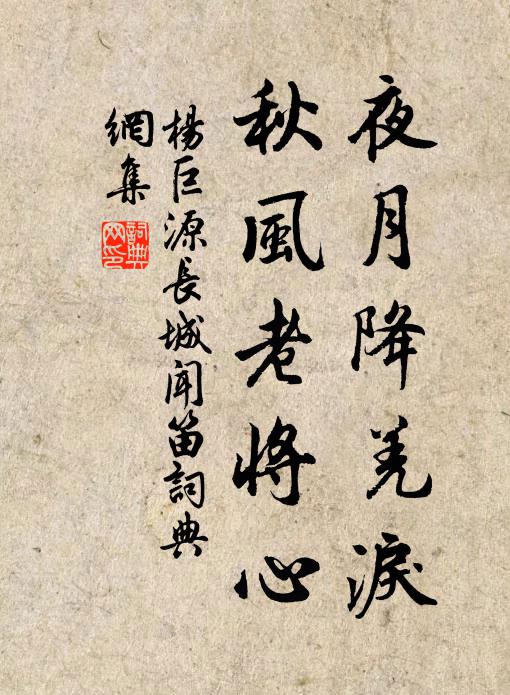 夜月降羌淚
秋風老將心
楊巨源長城聞笛詞典
網集
詞典網印